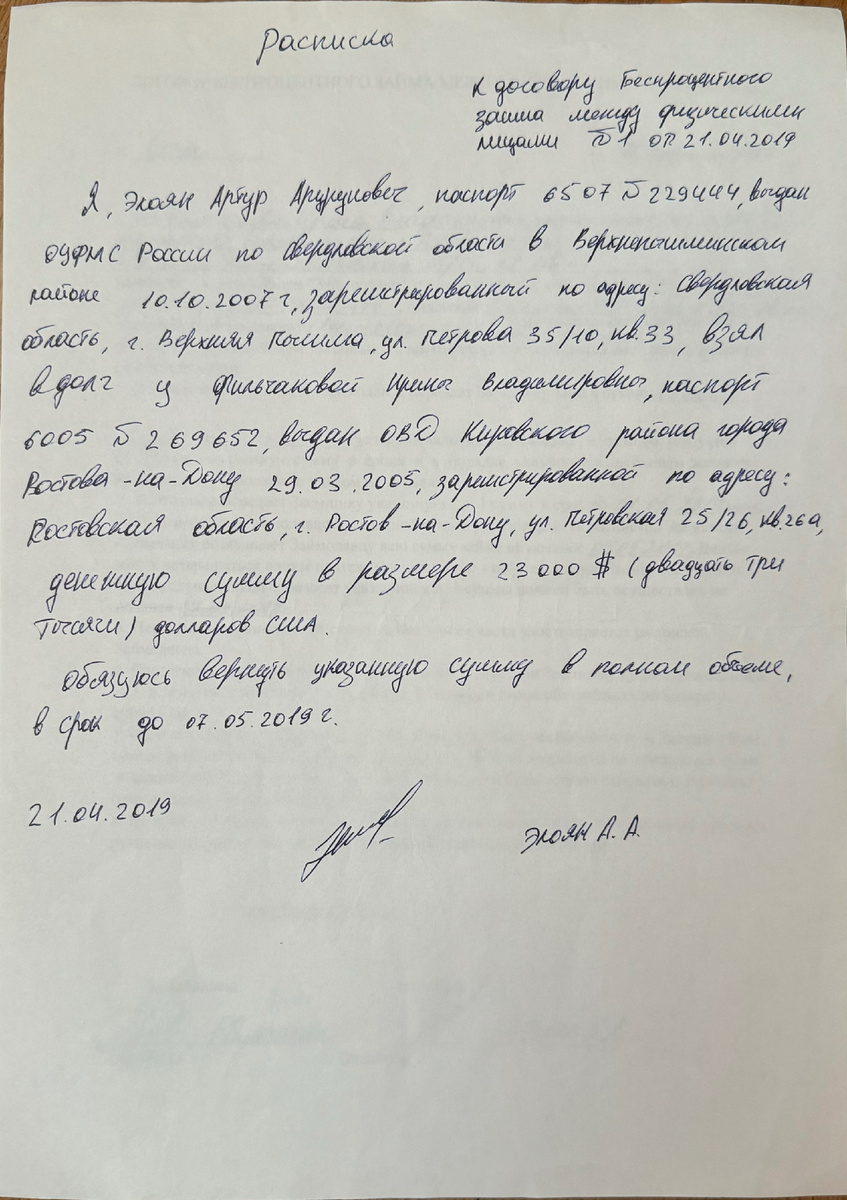 Расписка
к договору Беспроцентного
займа между физическими
лицами №1 от 21.04.2019
Я, Элоян Артур Арутунович, паспорт 6507 №229444, выдан
ОУФМС России по Свердловской области в Верхнепышминском
районе 10.10.2007 г, зарегистрированный по адресу: Свердловская
область, г. Верхняя Пышма, ул. Петрова 35/10, кв.33, взял
в долг у Фильчаковой Ирины Владимировны, паспорт
6005 № 269652, выдан ОВД Кировского района города
Ростова-на-Дону 29.03.2005, зарегистрированной по адресу:
Ростовская область, г. Ростов-на-Дону, ул. Петровская 25/26, кв.26а,
денежную сумму в размере 23 000 $ (двадцать три
тысячи) долларов США.
Обязуюсь вернуть указанную сумму в полном объеме,
в срок до 07.05.2019 г.
21.04.2019
Элоян А. А.